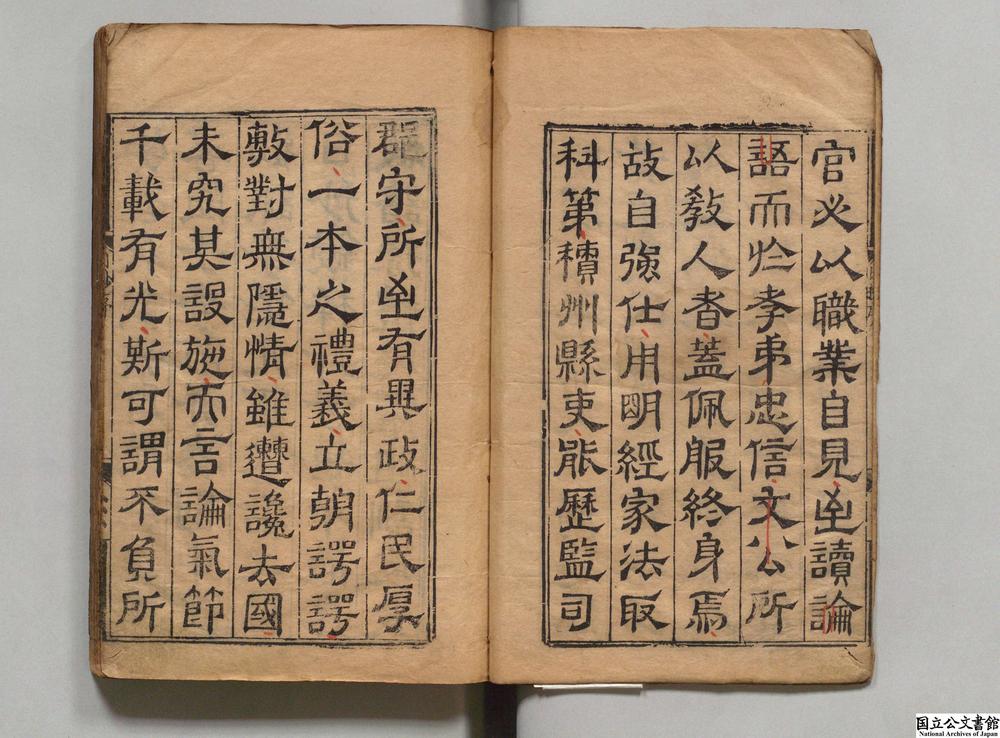 官必以職業自見㞢讀論
語而於孝弟忠信文公所
以敎人者蓋佩服終身焉
故自強仕用明經家法取
科第積州縣吏能歷監司
郡守所㞢有異政仁民厚
俗一本之禮義立朝諤諤
敷對無隱情雖遭讒去國
未究其設施而言論氣節
千載有光斯可謂不負所
国立公文書館
National Archives of Japan